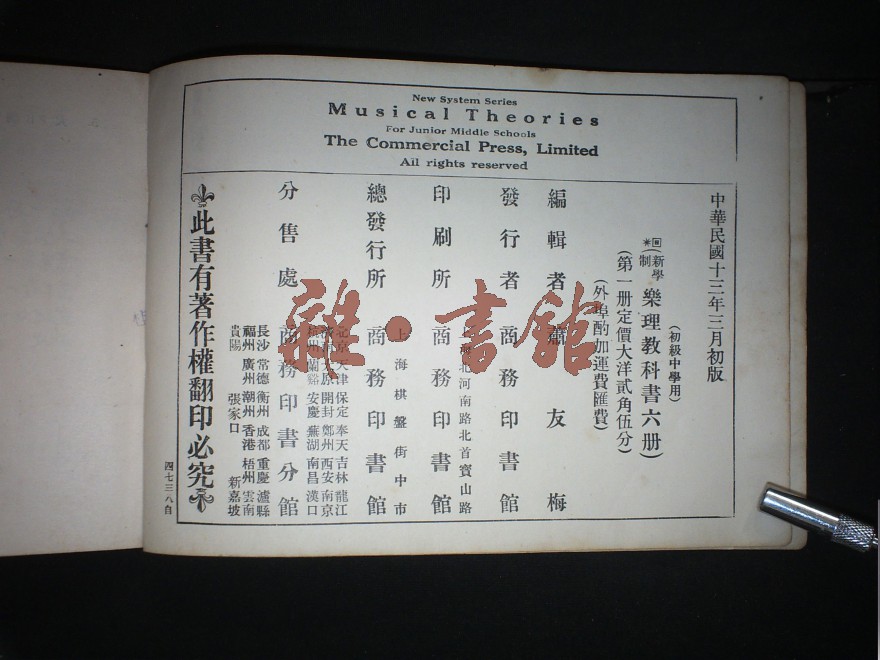 New System Series
Musical Theories
For Junior Middle Schools
The Commercial Press, Limited
All rights reserved
中華民國十三年三月初版
(初級中學用)
(新學制樂理教科書六册)
(第一册定價大洋貳角伍分)
(外埠酌加運費匯費)
編輯者 蕭友梅
發行者 商務印書館
印刷所 商務印書館
上海北河南路北首寶山路
總發行所 商務印書館
上海棋盤街中市
分售處 商務印書分館
北京天津保定奉天吉林龍江
濟南太原開封鄭州西安南京
杭州蘭谿安慶蕪湖南昌漢口
長沙常德衡州成都重慶瀘縣
福州廣州潮州香港梧州雲南
貴陽 張家口 新嘉坡
此書有著作權翻印必究
四七三八自
雜·書館